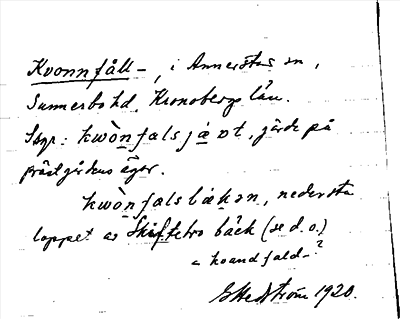 Kvonnfåll-, i Annerstas sn,
Sunnerbo hd, Kronobergs län.
Ssgr: kwònfalsjæ̀ʀt, gärde på
prästgårdens ägor.
kwònfalsbækən, nedersta
loppet av Skiftebro bäck (se d.o.)
= kvandfald-?
1920.